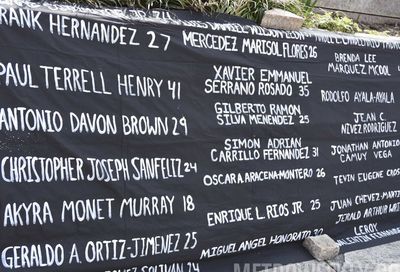 FRANK HERNANDEZ 27
PAUL TERRELL HENRY 41
ANTONIO DAVON BROWN 29
CHRISTOPHER JOSEPH SANFELIZ 24
AKYRA MONET MURRAY 18
GERALDO A. ORTIZ-JIMENEZ 25
MERCEDEZ MARISOL FLORES 26
XAVIER EMMANUEL
SERRANO ROSADO 35
GILBERTO RAMON
SILVA MENENDEZ 25
SIMON ADRIAN
CARRILLO FERNANDEZ 31
OSCAR A. ARACENA-MONTERO 26
ENRIQUE L. RIOS JR 25
MIGUEL ANGEL HONORATO 30
BRENDA LEE
MARQUEZ MCCOOL
RODOLFO AYALA-AYALA
JEAN C.
NIVEZ RODRIGUEZ
JONATHAN ANTONIO
CAMUY VEGA
TEVIN EUGENE
JUAN CHEVEZ-MARTI
JERALD ARTHUR
LEROY
VALENTIN FERNAN